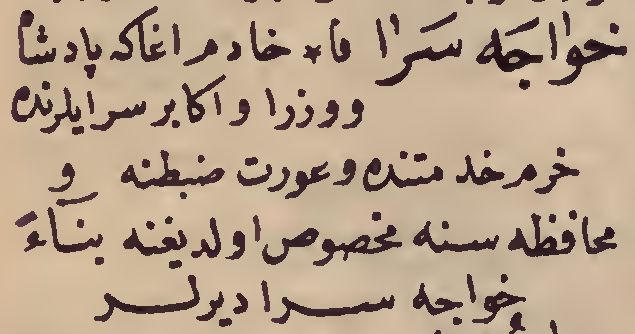 خواجه سرا فا* خادم اغاكه پادشا
ووزرا واكابر سرايلرنده
خرم خدمتنده وعورت ضبطنه و
محافظه سنه مخصوص اولديغنه بناءً
خواجه سرا ديرلر